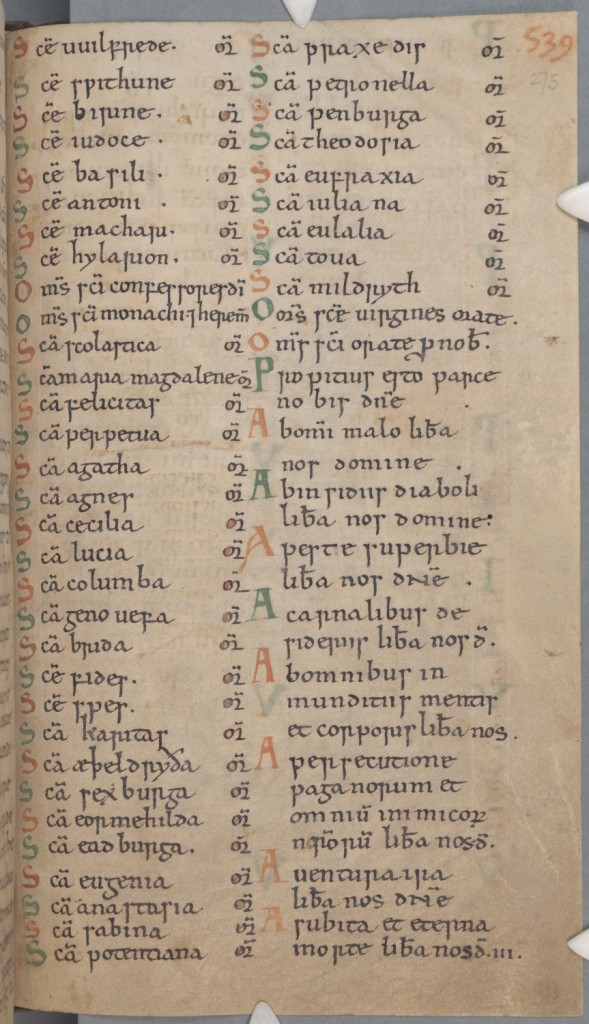 Scē uuilfrede. or̄
Scē spithune or̄
Scē birine. or̄
Scē iudoce . or̄
Scē basili . or̄
Scē antoni . or̄
Scē macharii. or̄
Scē hylarion. or̄
Om̄s sc̄i confessores dī
Om̄s sc̄i monachi ⁊ herem̄
Scā scolastica or̄
Scā maria magdalene or̄
Scā felicitas
Scā perpetua or̄
Scā agatha or̄
Scā agnes or̄
Scā cecilia or̄
Scā lucia or̄
Scā columba or̄
Scā genouefa or̄
Scā brida or̄
Scē fides. or̄
Scē spes. or̄
Scā karitas or̄
Scā æþeldryða or̄
Scā sexburga or̄
Scā eormehilda or̄
Scā eadburga. or̄
Scā eugenia or̄
Scā anastasia or̄
Scā sabina or̄
Scā potentiana or̄
Scā praxedis or̄
Scā petronella or̄
Scā penburga or̄
Scā theodosia or̄
Scā eufraxia or̄
Scā iuliana or̄
Scā eulalia or̄
Scā toua or̄
Scā mildryth or̄
Om̄s scē uirgines orate.
Om̄s sc̄i orate p̄ nob̄.
Propitius esto parce
nobis dn̄e .
Ab om̄i malo lib̄a
nos domine .
Ab insidiis diaboli
lib̄a nos domine:
A peste superbie
lib̄a nos dn̄e .
A carnalibus de
sideriis lib̄a nos d̄.
Ab omnibus in
munditiis mentis
et corporis lib̄a nos .
A persecutione
paganorum et
omniū inimicoꝝ
nr̄orū lib̄a nos d̄.
A uentura ira
lib̄a nos dn̄e
A subita et eterna
morte lib̄a nos d̄. iii.
539
275